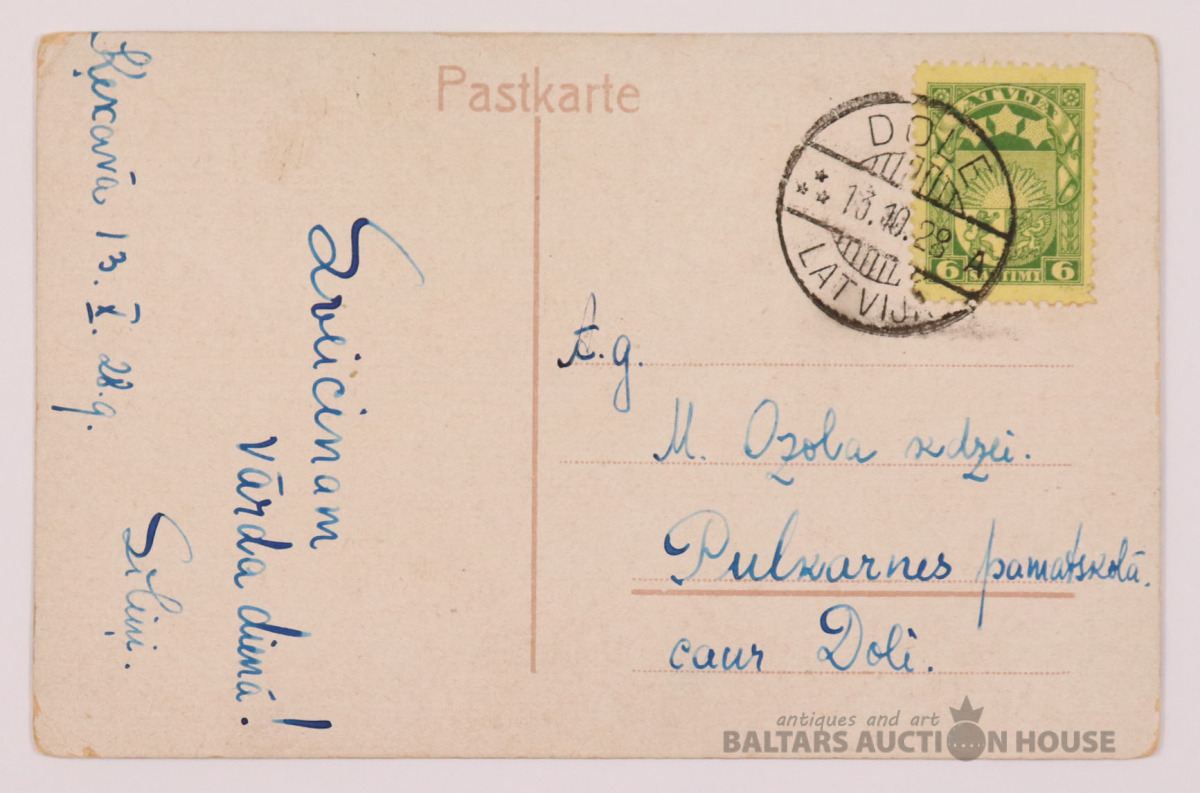 Pastkarte
Ķekavā 13. X. 28.g.
Sveicinam
vārda dienā!
Siliņi.
LATVIJA
6 SANTIMI 6
DOLE
13.10.28
A
LATVIJA
A.g.
M. Ozola kdzei.
Pulkarnes pamatskolā.
caur Doli.
antiques and art
BALTARS AUCTION HOUSE